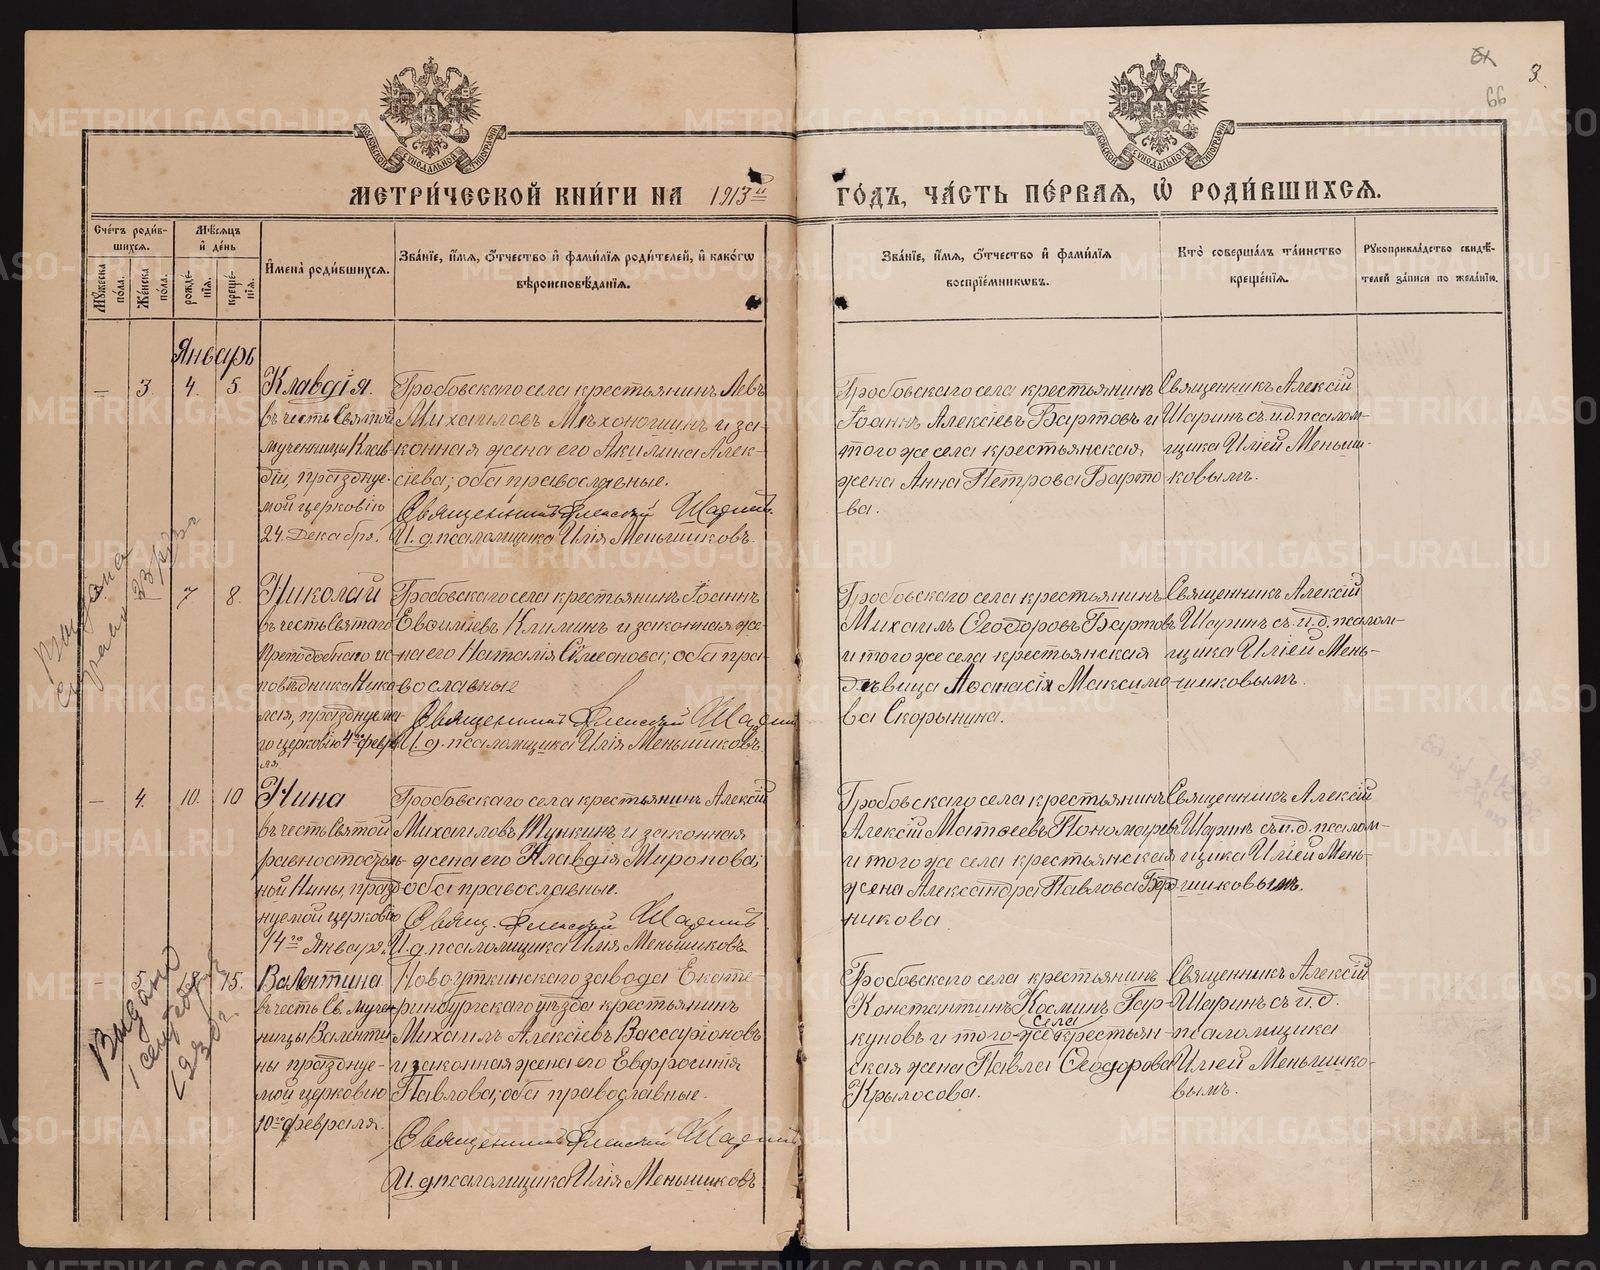 МЕТРИ́ЧЕСКОЙ КНИ́ГИ НА 1913й ГО́ДЪ, ЧА́СТЬ ПЕ́РВАЯ, Ѽ РОДИ́ВШИХСЯ.
3
66
Сче́тъ роди́в-
шихся.
Мꙋ́жеска по́ла.
Же́нска по́ла.
Мѣ́сяцъ и де́нь
рожде́нїя.
креще́нїя.
Имена̀ роди́вшихся.
Зва́нїе, и́мя, ѻ́тчество и фами́лїя роди́телей, и како́гѡ
вѣроисповѣ́данїя.
Зва́нїе, и́мя, ѻ́тчество и фами́лїя
воспрїе́мниковъ.
Кто̀ соверша́лъ та́инство
креще́нїя.
Рꙋкоприкла́дство свидѣ́-
телей за́писи по жела́нїю.
Январь
— 3 4. 5.
Клавдія.
въ честь Святой
мученицы Клав-
діи, празднуе-
мой церковію
24. Декабря.
Гробовскаго села крестьянинъ Левъ
Михаиловъ Мѣхоношинъ и за-
конная жена его Акилина Алек-
сіева; оба православные.
Священникъ Алексій Шаринъ
И. д. псаломщика Илія Меньшиковъ.
Гробовскаго села крестьянинъ
Іоаннъ Алексіевъ Бартовъ и
того же села крестьянская
жена Анна Петрова Барто-
ва.
Священникъ Алексій
Шаринъ съ и.д. псалом-
щика Иліей Меньши-
ковымъ.
Выдана
7 8.
Николай
въ честь Святаго
Преподобнаго ис-
повѣдника Нико-
лая, празднуема-
го церковію 4го февра-
ля
Гробовскаго села крестьянинъ Іоаннъ
Евоиміевъ Климинъ и законная же-
на его Наталія Сѵмеонова; оба пра-
вославные
Священникъ Алексій Шаринъ
И. д. псаломщика Илія Меньшиковъ
Гробовскаго села крестьянинъ
Михаилъ Ѳеодоровъ Бартовъ
и того же села крестьянская
дѣвица Аѳанасія Максимо-
ва Скорынина.
Священникъ Алексій
Шаринъ съ и.д. псалом-
щика Иліей Мень-
шиковымъ.
— 4. 10. 10
Нина
въ честь Святой
равноапостоль-
ной Нины, праз-
нуемой церковію
14го Января.
Гробовскаго села крестьянинъ Алексій
Михаиловъ Тункинъ и законная
жена его Клавдія Миронова;
оба православные.
Свящ. Алексій Шаринъ
И. д. псаломщика Илія Меньшиковъ
Гробовскаго села крестьянинъ
Алексій Матѳеевъ Пономаревъ
и того же села крестьянская
жена Александра Павлова Берд-
никова.
Священникъ Алексій
Шаринъ съ и.д. псалом-
щика Иліей Мень-
шиковымъ.
Выдано
1 сентября
1930 г.
15.
Валентина
въ честь Св. муче-
ницы Валенти-
ны празднуе-
мой церковію
10го февраля.
Новоуткинскаго завода Екате-
ринбургскаго уѣзда крестьянинъ
Михаилъ Алексіевъ Вассаріоновъ
и законная жена его Евфросинія
Павлова; оба православные.
Священникъ Алексій Шаринъ
И. д. псаломщика Илія Меньшиковъ
Гробовскаго села крестьянинъ
Константинъ Косминъ Гар-
куновъ и того-же села крестьян-
ская жена Павла Ѳеодорова
Крылосова.
Священникъ Алексій
Шаринъ съ и.д.
псаломщика
Иліей Меньшико-
вымъ.
METRIKI.GASO-URAL.RU